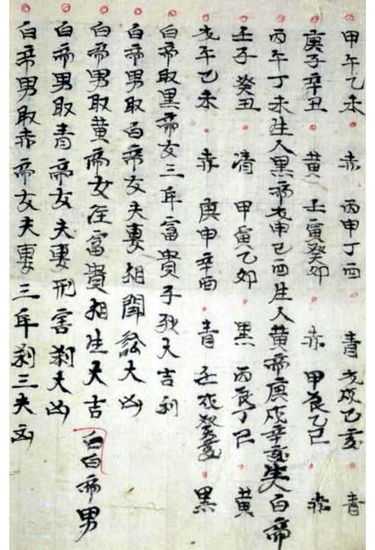 甲午乙未 赤 丙申丁酉 青 戊戌乙亥 青
庚子辛丑 黄 壬寅癸卯 赤 甲辰乙巳 赤
丙午丁未生人黑帝戊申己酉生人黄帝庚戌辛亥生人白帝
壬子癸丑 清 甲寅乙卯 黑 丙辰丁巳 黄
戊午乙未 赤 庚申辛酉 青 壬戌癸亥 黑
白帝取黑帝女三年富貴子孫大吉利
白帝男取白帝女夫妻相大凶
白帝男取黄帝女注富貴相生大吉 白白帝男
白帝男取青帝女夫妻刑害刹大凶
白帝男取赤帝女夫妻三年刹三夫凶